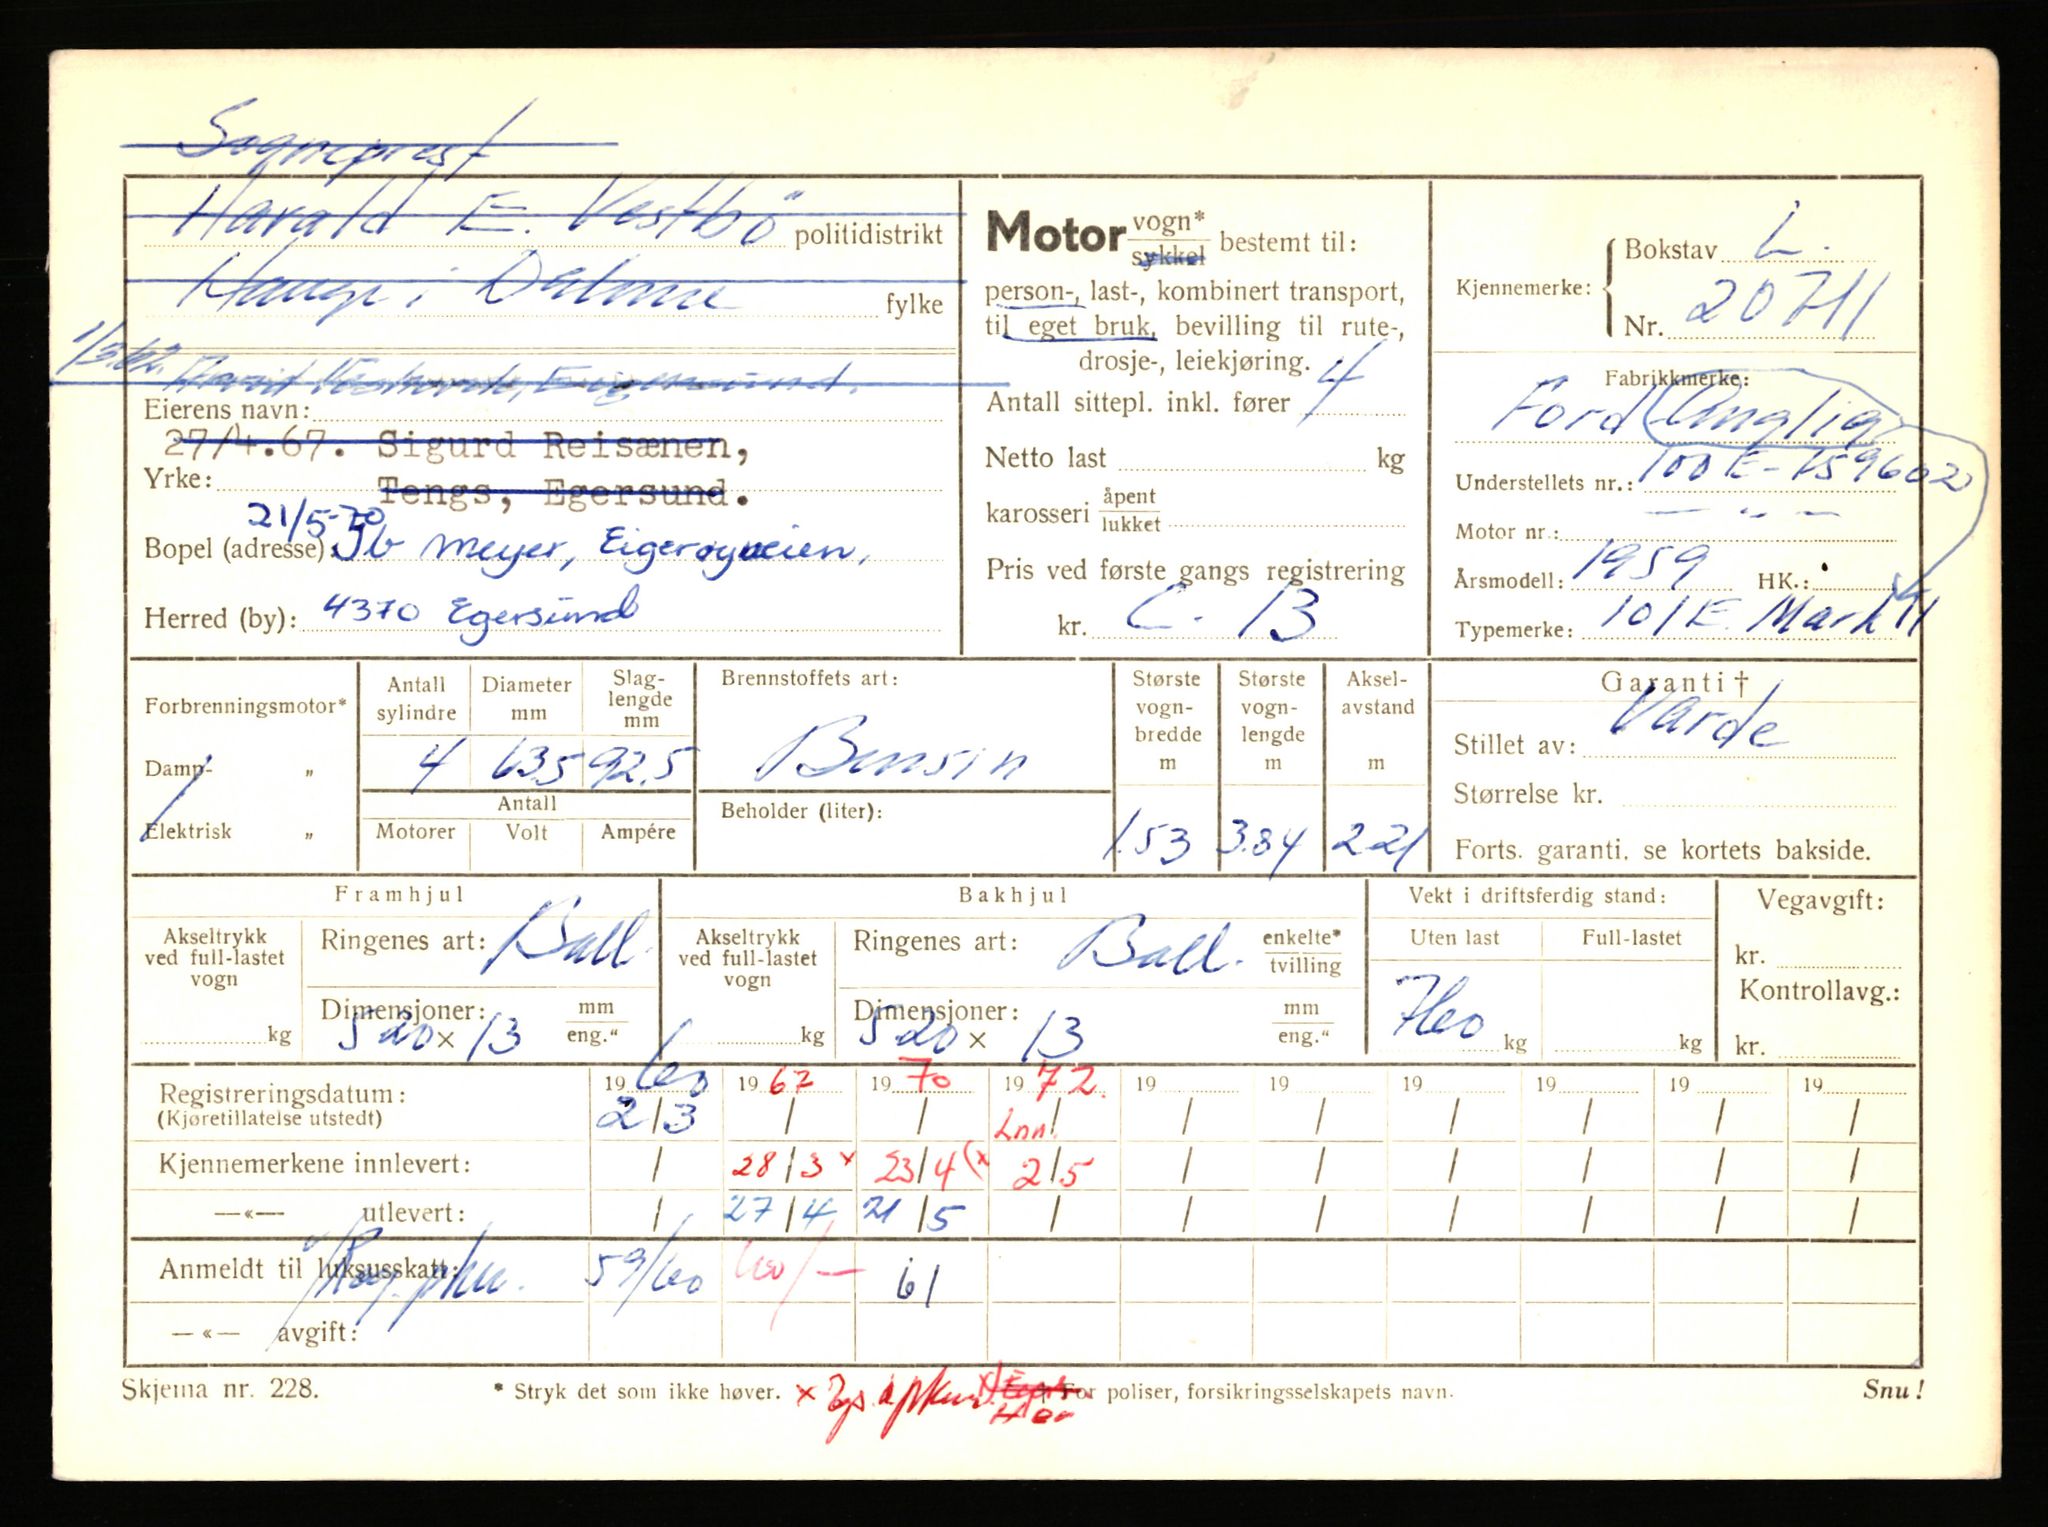 Sogneprest
Harald E. Vestbö politidistrikt
Hauge i Dalane fylke
1/3.62. Eigersund.
Eierens navn:
27/4.67. Sigurd Reisænen,
Yrke: Tengs, Egersund.
21/5-70
Bopel (adresse): Ib Meyer, Eigerøyveien,
Herred (by): 4370 Egersund
Motor vogn* sykkel bestemt til:
person-, last-, kombinert transport,
til eget bruk, bevilling til rute-,
drosje-, leiekjøring.
Antall sittepl. inkl. fører 4
Netto last kg
karosseri åpent lukket
Pris ved første gangs registrering
kr. C. 13
Kjennemerke: Bokstav L.
Nr. 20711
Fabrikkmerke:
Ford Anglia
Understellets nr.: 100E-159602
Motor nr.: — " —
Årsmodell: 1959 HK.:
Typemerke: 101E. Mark II
Forbrenningsmotor*
Damp- „
Elektrisk „
Antall sylindre Diameter mm Slag-lengde mm
4 63.5 92.5
Antall
Motorer Volt Ampére
Brennstoffets art:
Bensin
Beholder (liter):
Største vogn-bredde m Største vogn-lengde m Aksel-avstand m
1.53 3.84 2.21
Garanti †
Stillet av: Varde
Størrelse kr.
Forts. garanti. se kortets bakside.
Framhjul
Akseltrykk ved full-lastet vogn kg
Ringenes art: Ball.
Dimensjoner: mm eng."
520 x 13
Bakhjul
Akseltrykk ved full-lastet vogn kg
Ringenes art: Ball. enkelte* tvilling
Dimensjoner: mm eng."
520 x 13
Vekt i driftsferdig stand:
Uten last Full-lastet
760 kg kg
Vegavgift:
kr.
Kontrollavg.:
kr.
Registreringsdatum: 19 60 19 67 19 70 19 72. 19 19 19 19 19 19
(Kjøretillatelse utstedt) 2/3 / / / / / / / / /
Lnn.
Kjennemerkene innlevert: / 28/3 x 23/4 (x 2/5 / / / / / /
—«— utlevert: / 27/4 21/5 / / / / / / /
Anmeldt til luksusskatt: 59/60 60/— 61
—«— avgift:
Skjema nr. 228. * Stryk det som ikke høver. x † For poliser, forsikringsselskapets navn. Snu!